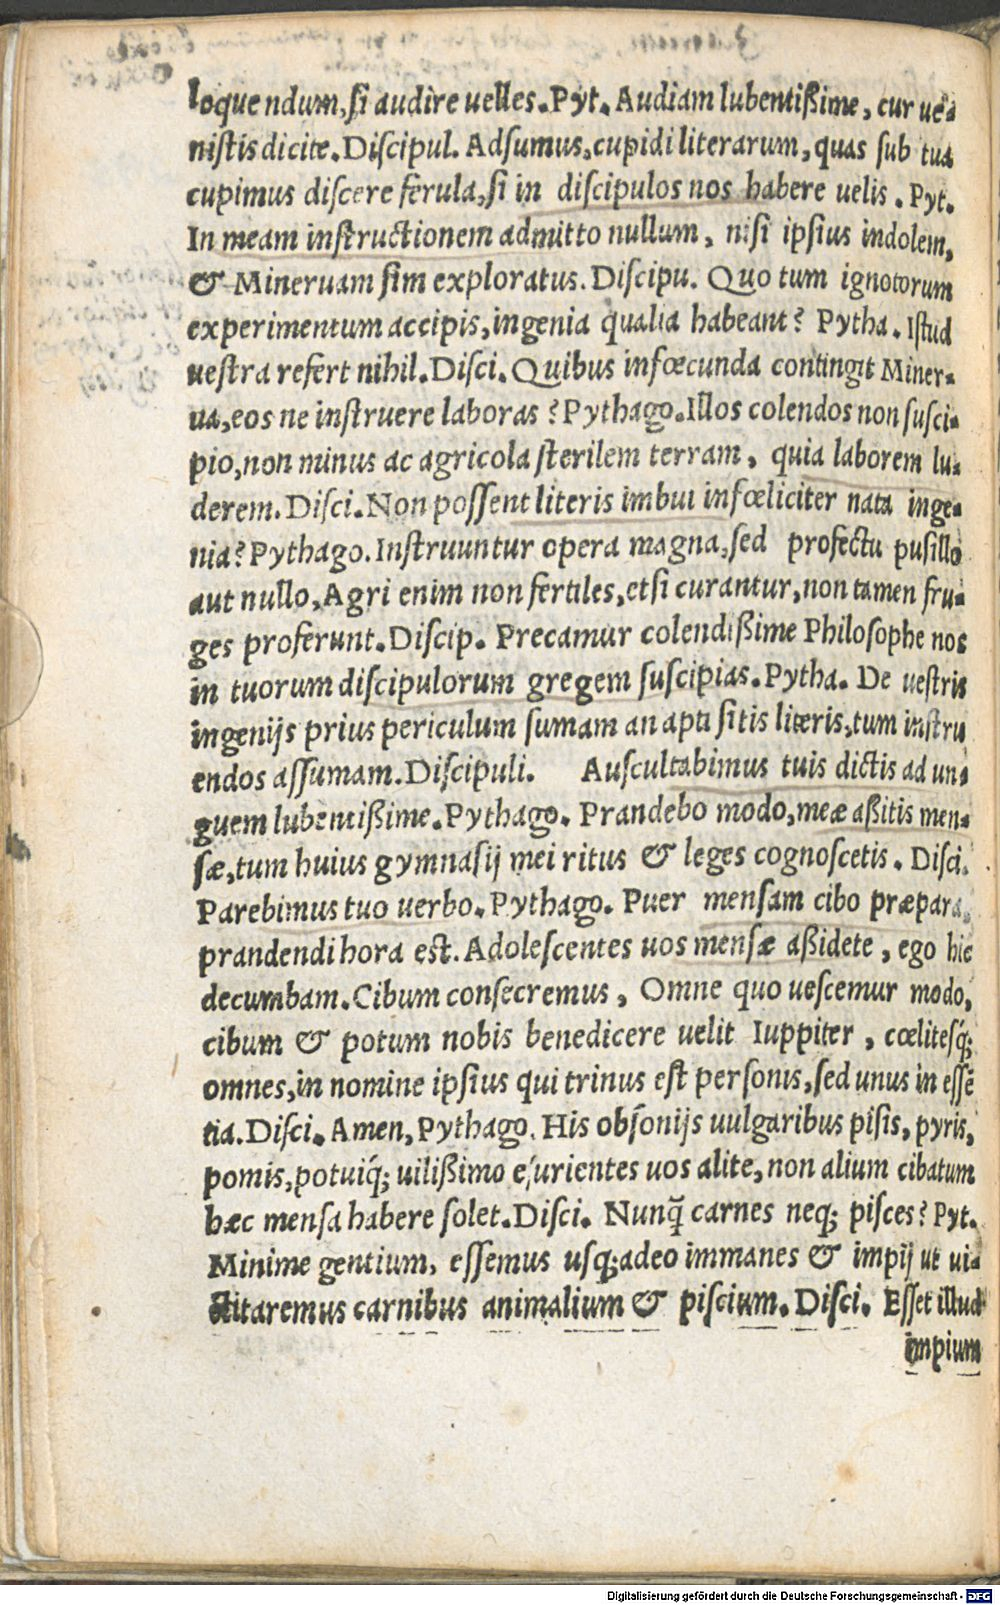 loquendum, ſi audire uelles. Pyt. Audiam lubentißime, cur ue-
niſtis dicite. Diſcipul. Adſumus, cupidi literarum, quas ſub tua
cupimus diſcere ferula, ſi in diſcipulos nos habere uelis. Pyt.
In meam inſtructionem admitto nullum, niſi ipſius indolem,
& Mineruam ſim exploratus. Diſcipu. Quo tum ignotorum
experimentum accipis, ingenia qualia habeant? Pytha. Iſtud
ueſtra refert nihil. Diſci. Quibus infœcunda contingit Miner-
ua, eos ne inſtruere laboras? Pythago. Illos colendos non ſuſci-
pio, non minus ac agricola ſterilem terram, quia laborem lu-
derem. Diſci. Non poſſent literis imbui infœliciter nata inge-
nia? Pythago. Inſtruuntur opera magna, ſed profectu puſillo
aut nullo, Agri enim non fertiles, etſi curantur, non tamen fru-
ges proferunt. Diſcip. Precamur colendißime Philoſophe nos
in tuorum diſcipulorum gregem ſuſcipias. Pytha. De ueſtris
ingenijs prius periculum ſumam an apti ſitis literis, tum inſtru
endos aſſumam. Diſcipuli. Auſcultabimus tuis dictis ad un-
guem lubentißime. Pythago. Prandebo modo, meæ aßitis men-
ſæ, tum huius gymnaſij mei ritus & leges cognoſcetis. Diſci.
Parebimus tuo uerbo. Pythago. Puer menſam cibo præpara,
prandendi hora eſt. Adoleſcentes uos menſæ aßidete, ego hic
decumbam. Cibum conſecremus, Omne quo ueſcemur modo,
cibum & potum nobis benedicere uelit Iuppiter, cœliteſq́;
omnes, in nomine ipſius qui trinus eſt perſonis, ſed unus in eſſē
tia. Diſci. Amen, Pythago. His obſonijs uulgaribus piſis, pyris,
pomis, potuiq́; uilißimo eſurientes uos alite, non alium cibatum
hæc menſa habere ſolet. Diſci. Nunq̃ carnes neq; piſces? Pyt.
Minime gentium, eſſemus uſq;adeo immanes & impij ut ui-
ctitaremus carnibus animalium & piſcium. Diſci. Eſſet illud
impium
Digitalisierung gefördert durch die Deutsche Forschungsgemeinschaft - DFG